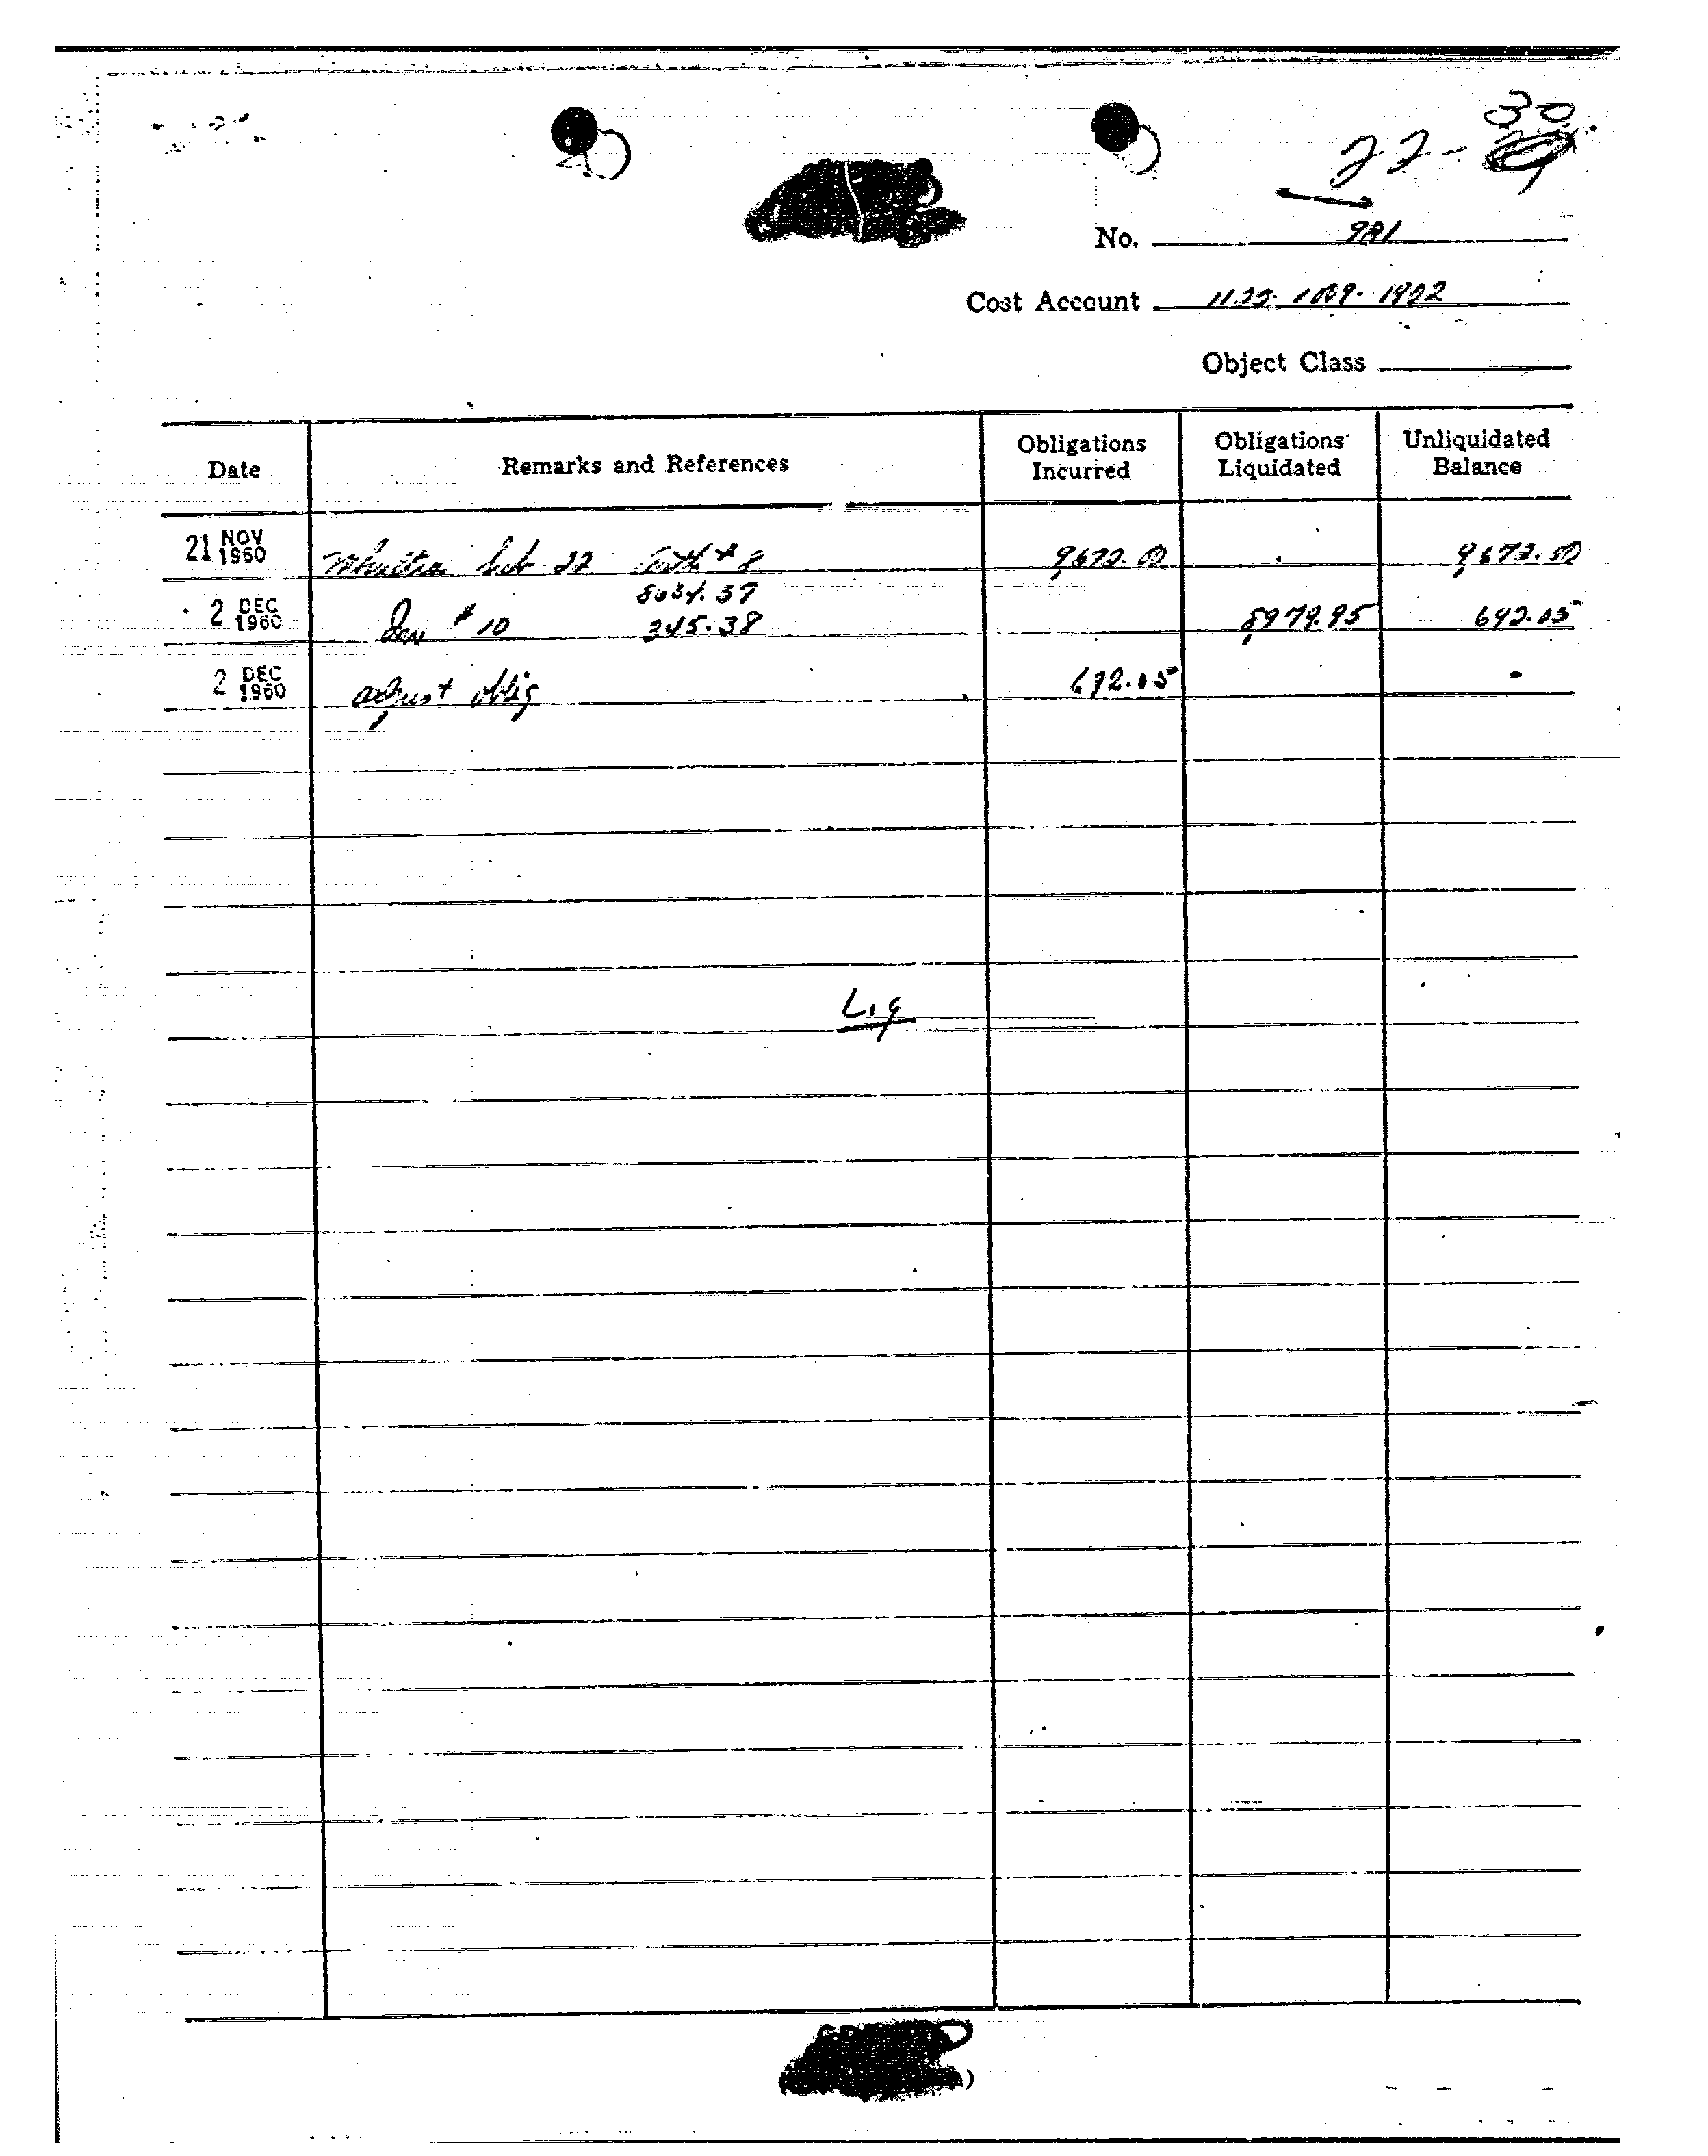 22-
30
No. 921
Cost Account 1125-1009-1902
Object Class
Date Remarks and References Obligations Incurred Obligations Liquidated Unliquidated Balance
21 NOV 1960 22 # 8 9,672.00 9,672.00
8634.57
2 DEC 1960 # 10 345.38 8979.95 692.05
2 DEC 1960 adjust oblig 692.05 -
Liq